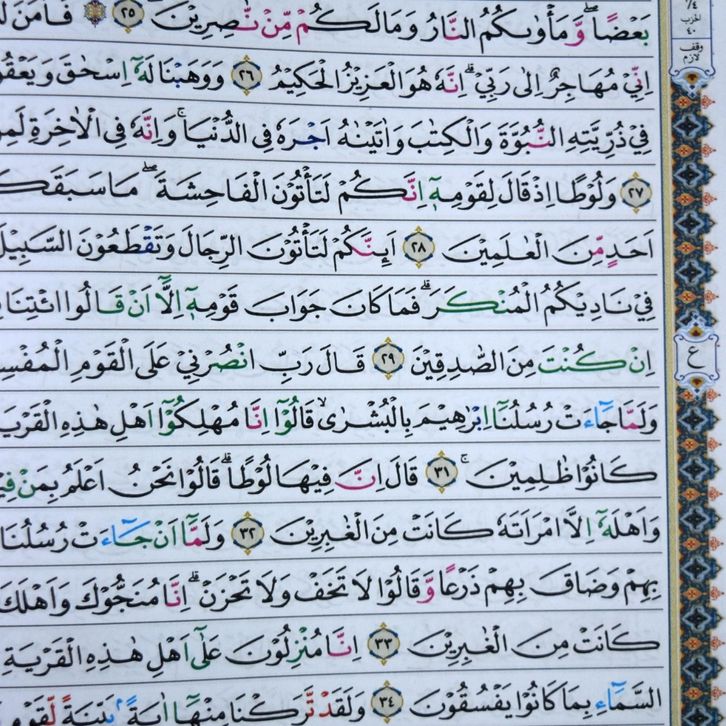 بَعْضًا ۖ وَّمَاْوٰىكُمُ النَّارُ وَمَا لَكُمْ مِّنْ نّٰصِرِيْنَ ۟ۙ ٢٥ فَاٰمَنَ
اِنِّيْ مُهَاجِرٌ اِلٰى رَبِّيْ ۗ اِنَّهٗ هُوَ الْعَزِيْزُ الْحَكِيْمُ ٢٦ وَوَهَبْنَا لَهٗٓ اِسْحٰقَ وَيَعْقُ
فِيْ ذُرِّيَّتِهِ النُّبُوَّةَ وَالْكِتٰبَ وَاٰتَيْنٰهُ اَجْرَهٗ فِى الدُّنْيَا ۚ وَاِنَّهٗ فِى الْاٰخِرَةِ لَمِ
٢٧ وَلُوْطًا اِذْ قَالَ لِقَوْمِهٖٓ اِنَّكُمْ لَتَأْتُوْنَ الْفَاحِشَةَ ۖ مَا سَبَقَكُ
اَحَدٍ مِّنَ الْعٰلَمِيْنَ ٢٨ اَىِٕنَّكُمْ لَتَأْتُوْنَ الرِّجَالَ وَتَقْطَعُوْنَ السَّبِيْلَ
فِيْ نَادِيْكُمُ الْمُنْكَرَ ۗ فَمَا كَانَ جَوَابَ قَوْمِهٖٓ اِلَّآ اَنْ قَالُوا ائْتِنَا
اِنْ كُنْتَ مِنَ الصّٰدِقِيْنَ ٢٩ قَالَ رَبِّ انْصُرْنِيْ عَلَى الْقَوْمِ الْمُفْسِ
وَلَمَّا جَاۤءَتْ رُسُلُنَآ اِبْرٰهِيْمَ بِالْبُشْرٰى ۙ قَالُوْٓا اِنَّا مُهْلِكُوْٓا اَهْلِ هٰذِهِ الْقَرْيَ
كَانُوْا ظٰلِمِيْنَ ۚ ٣١ قَالَ اِنَّ فِيْهَا لُوْطًا ۗ قَالُوْا نَحْنُ اَعْلَمُ بِمَنْ فِيْ
وَاَهْلَهٗٓ اِلَّا امْرَاَتَهٗ كَانَتْ مِنَ الْغٰبِرِيْنَ ٣٢ وَلَمَّآ اَنْ جَاۤءَتْ رُسُلُنَا
بِهِمْ وَضَاقَ بِهِمْ ذَرْعًا وَّقَالُوْا لَا تَخَفْ وَلَا تَحْزَنْ ۗ اِنَّا مُنَجُّوْكَ وَاَهْلَكَ
كَانَتْ مِنَ الْغٰبِرِيْنَ ٣٣ اِنَّا مُنْزِلُوْنَ عَلٰٓى اَهْلِ هٰذِهِ الْقَرْيَةِ
السَّمَاۤءِ بِمَا كَانُوْا يَفْسُقُوْنَ ٣٤ وَلَقَدْ تَّرَكْنَا مِنْهَآ اٰيَةً ۢ بَيِّنَةً لِّقَوْمٍ
الحزب
٤٠
وقف
لازم
ع